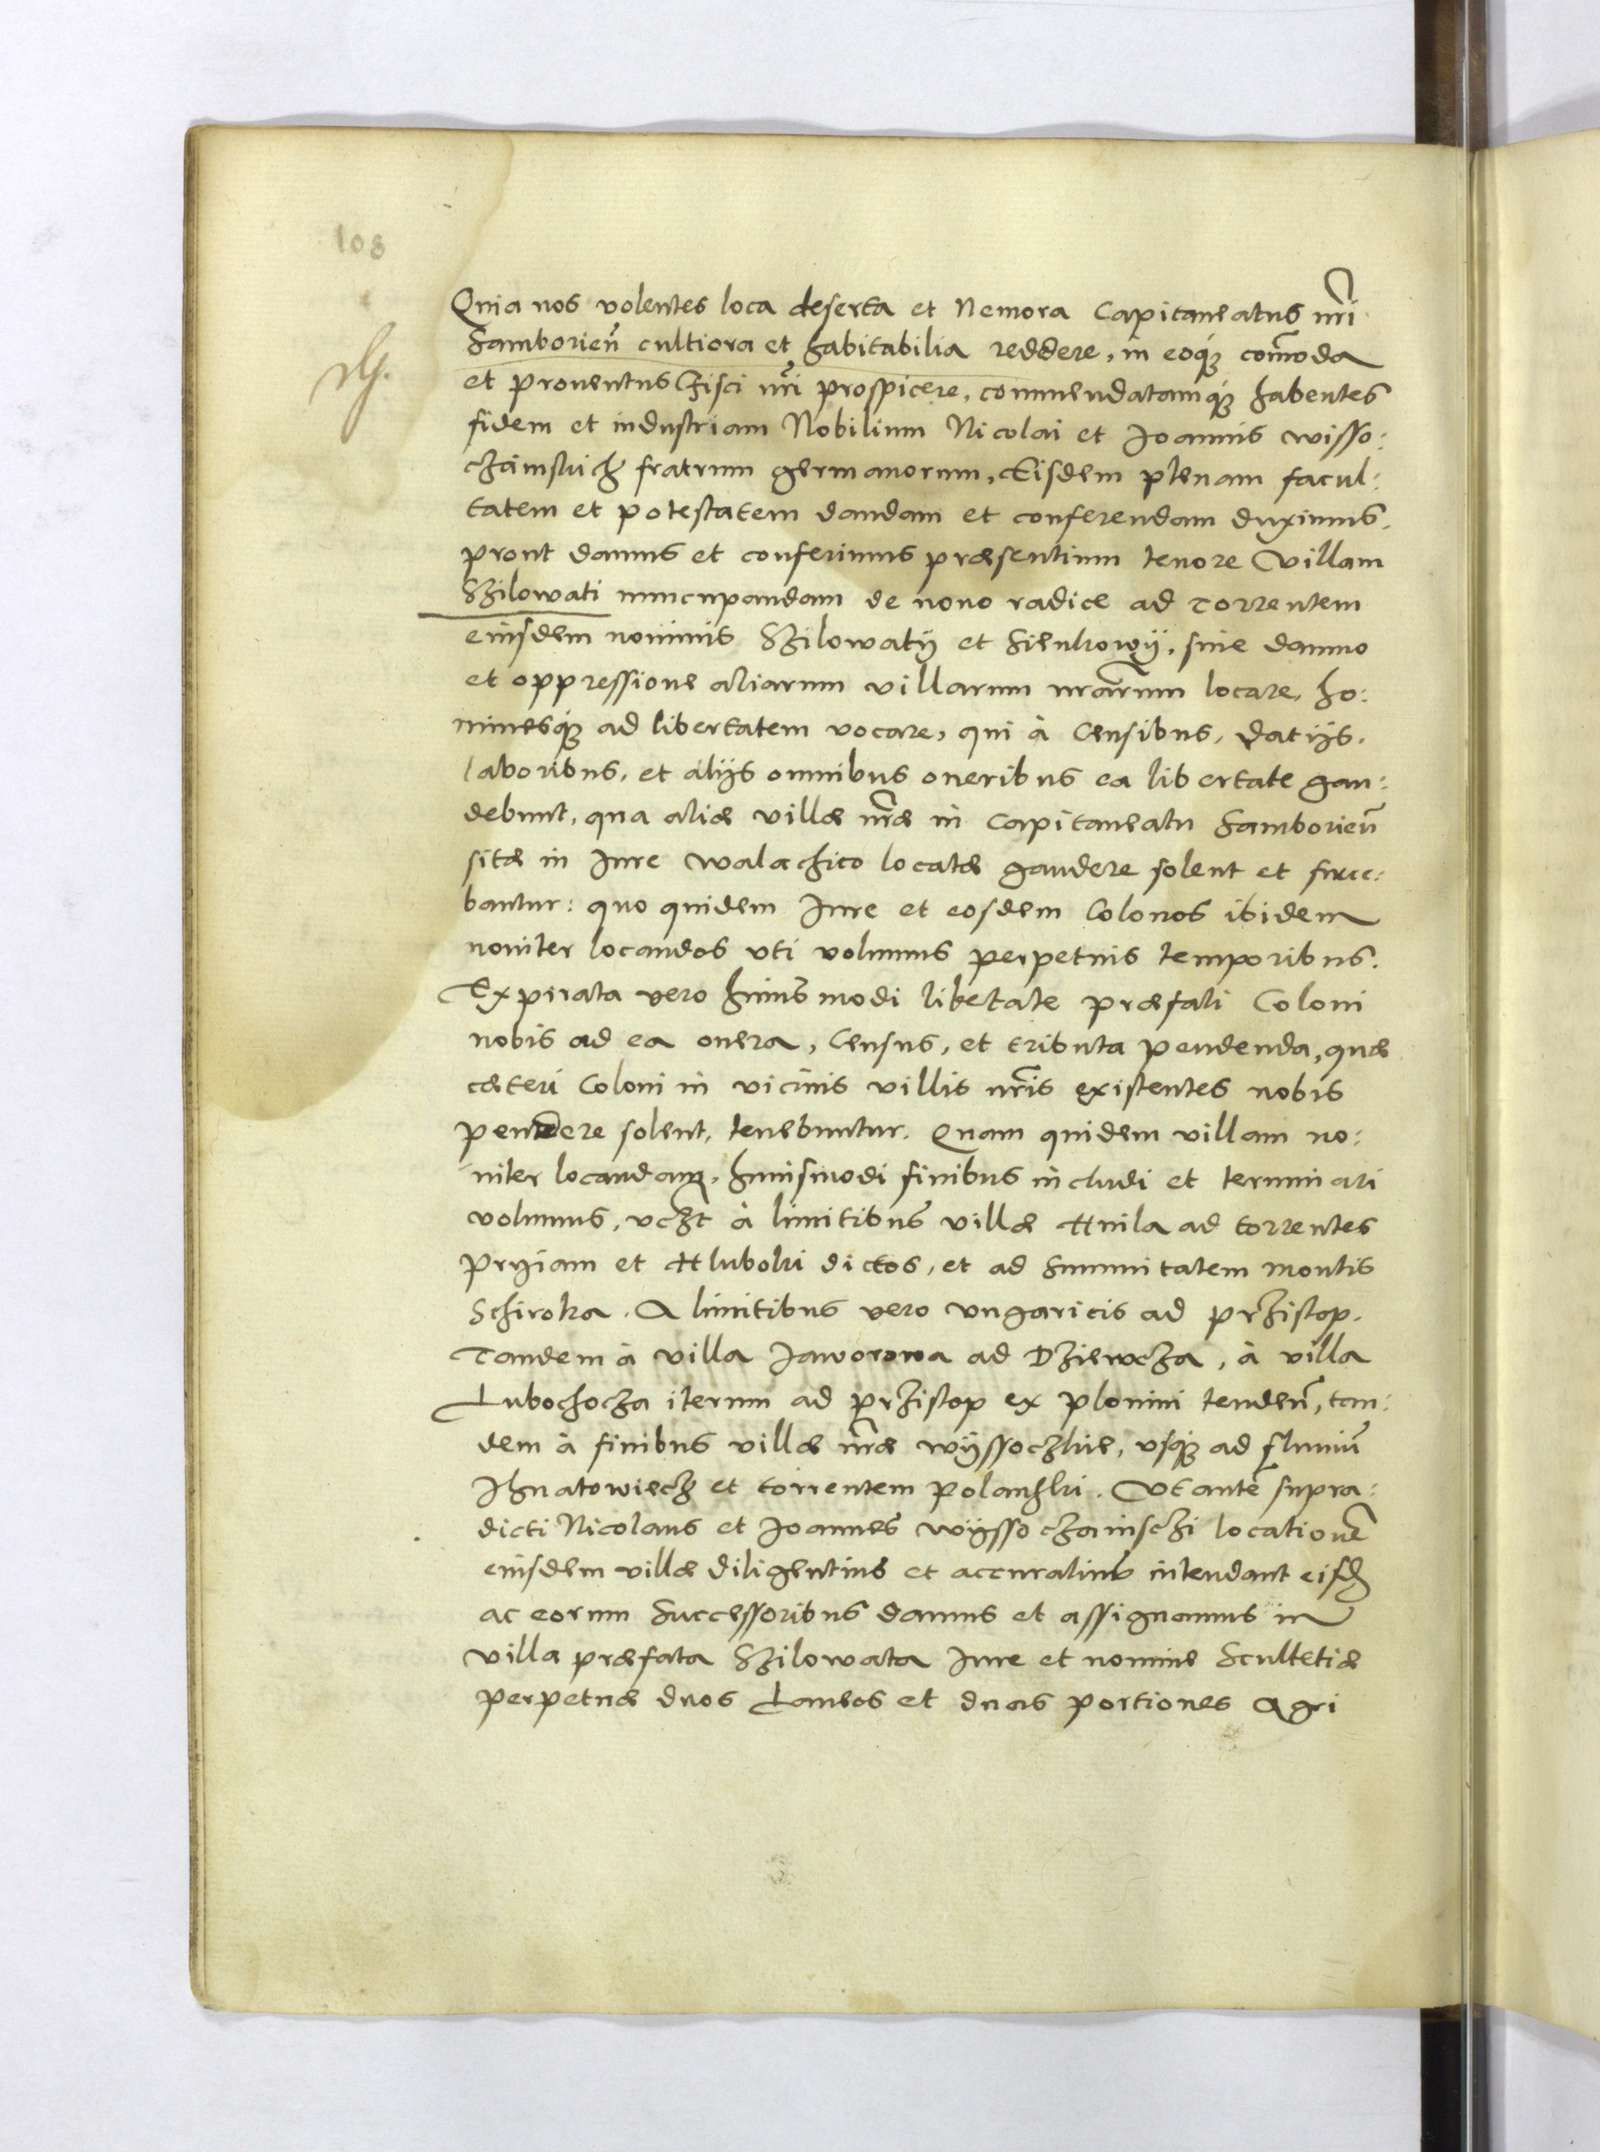 108
Quia nos volentes loca deserta et Nemora Capitaneatus nrĩ
Samborieñ cultiora et habitabilia reddere, in eoq́ꝫ com̃oda
et prouentus Fisci nrĩ prospicere, commendatamq́ꝫ habentes
fidem et industriam Nobilium Nicolai et Joannis wisso:
chainskich fratrum germanorum, Eisdem plenam facul:
tatem et potestatem dandam et conferendam duximus,
prout damus et conferimus præsentium tenore Villam
Szilowati nuncupandam de nouo radice ad torrentem
eiusdem nominis Szilowatÿ et Sienkowÿ, sine damno
et oppressione aliarum villarum nrãrum locare, ho:
minesq́ꝫ ad libertatem vocare, qui à Censibus, datÿs,
laboribus, et alÿs omnibus oneribus ea libertate gau:
debunt, qua aliæ villæ nrã̃e in Capitaneatu Samborieñ
sitæ in Jure walachico locatæ gaudere solent et frue:
bantur: quo quidem Jure et eosdem Colonos ibidem
nouiter locandos vti volumus perpetuis temporibus.
Expirata vero huiusmodi libertate præfati Coloni
nobis ad ea onera, Census, et tributa pendenda, quæ
cæteri Coloni in vicinis villis nrĩs existentes nobis
pendere solent, tenebuntur. Quam quidem villam no:
uiter locandam, huiusmodi finibus includi et terminari
volumus, vczt à limitibus villæ Hnila ad torrentes
Prÿiam et Hluboki dictos, et ad summitatem montis
Schiroka. A limitibus vero vngaricis ad przistop.
Tandem à villa Jaworowa ad Dziewcza, à villa
Lubochocza iterum ad przistop ex plonini tendeñ, tan:
dem à finibus villæ nrã̃e wÿssoczkie, vsq́ꝫ ad fluuiũ
Ihnatowiech et torrentem Polanski. Vt autẽ supra:
dicti Nicolaus et Joannes wÿssochainschi locationẽ
eiusdem villæ diligentius et accuratius intendant eisd̃
ac eorum Successoribus damus et assignamus in
villa præfata Szilowata Jure et nomine Scultetiæ
perpetuæ duos Laneos et duas portiones Agri